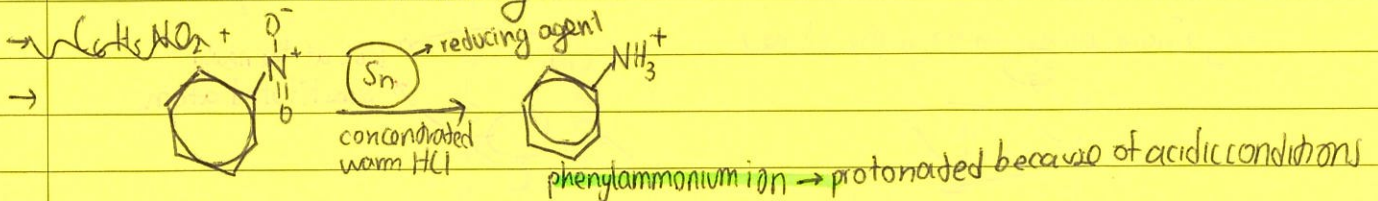 → C6H5NO2 +
O⁻
N⁺
O
→
Sn → reducing agent
concentrated
warm HCl
NH3⁺
phenylammonium ion → protonated because of acidic conditions